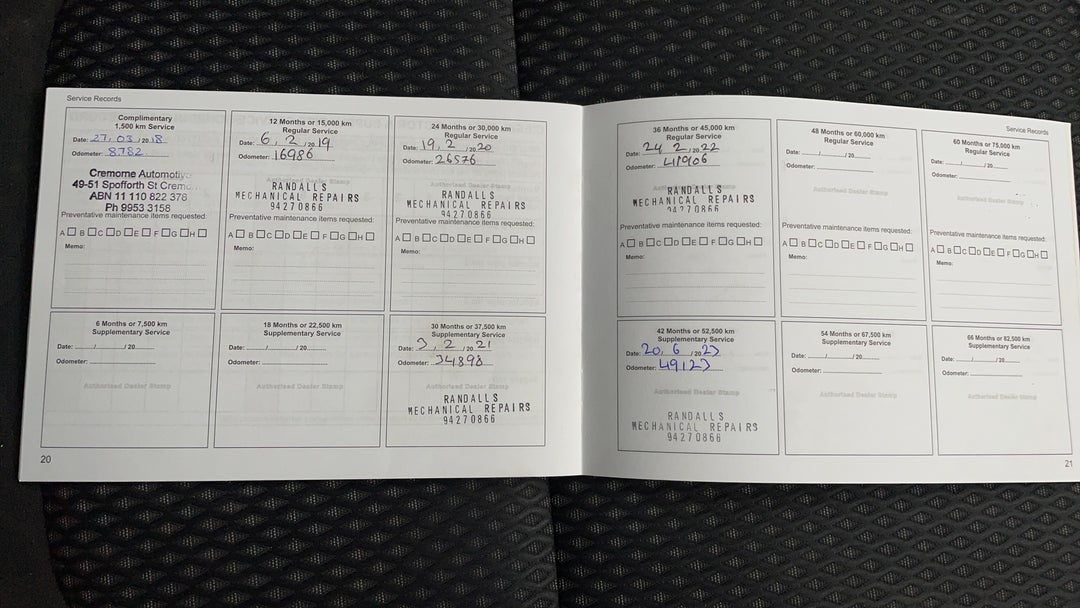 Service Records
Complimentary
1,500 km Service
Date: 27, 03 / 20 18
Odometer: 8782
Cremorne Automotive
49-51 Spofforth St Cremo
ABN 11 110 822 378
Ph 9953 3158
Preventative maintenance items requested:
A B C D E F G H
Memo:
12 Months or 15,000 km
Regular Service
Date: 6, 2 / 20 19
Odometer: 16986
Authorised Dealer Stamp
RANDALLS
MECHANICAL REPAIRS
94270866
Preventative maintenance items requested:
A B C D E F G H
Memo:
24 Months or 30,000 km
Regular Service
Date: 19, 2 / 20 20
Odometer: 26576
Authorised Dealer Stamp
RANDALLS
MECHANICAL REPAIRS
94270866
Preventative maintenance items requested:
A B C D E F G H
Memo:
6 Months or 7,500 km
Supplementary Service
Date: / / 20
Odometer:
Authorised Dealer Stamp
18 Months or 22,500 km
Supplementary Service
Date: / / 20
Odometer:
Authorised Dealer Stamp
30 Months or 37,500 km
Supplementary Service
Date: 3, 2 / 20 21
Odometer: 34898
Authorised Dealer Stamp
RANDALLS
MECHANICAL REPAIRS
94270866
20
Service Records
36 Months or 45,000 km
Regular Service
Date: 24 2 / 20 22
Odometer: 41906
Authorised Dealer Stamp
RANDALLS
MECHANICAL REPAIRS
94270866
Preventative maintenance items requested:
A B C D E F G H
Memo:
48 Months or 60,000 km
Regular Service
Date: / / 20
Odometer:
Authorised Dealer Stamp
Preventative maintenance items requested:
A B C D E F G H
Memo:
60 Months or 75,000 km
Regular Service
Date: / / 20
Odometer:
Authorised Dealer Stamp
Preventative maintenance items requested:
A B C D E F G H
Memo:
42 Months or 52,500 km
Supplementary Service
Date: 20, 6 / 20 23
Odometer: 49123
Authorised Dealer Stamp
RANDALLS
MECHANICAL REPAIRS
94270866
54 Months or 67,500 km
Supplementary Service
Date: / / 20
Odometer:
Authorised Dealer Stamp
66 Months or 82,500 km
Supplementary Service
Date: / / 20
Odometer:
Authorised Dealer Stamp
21